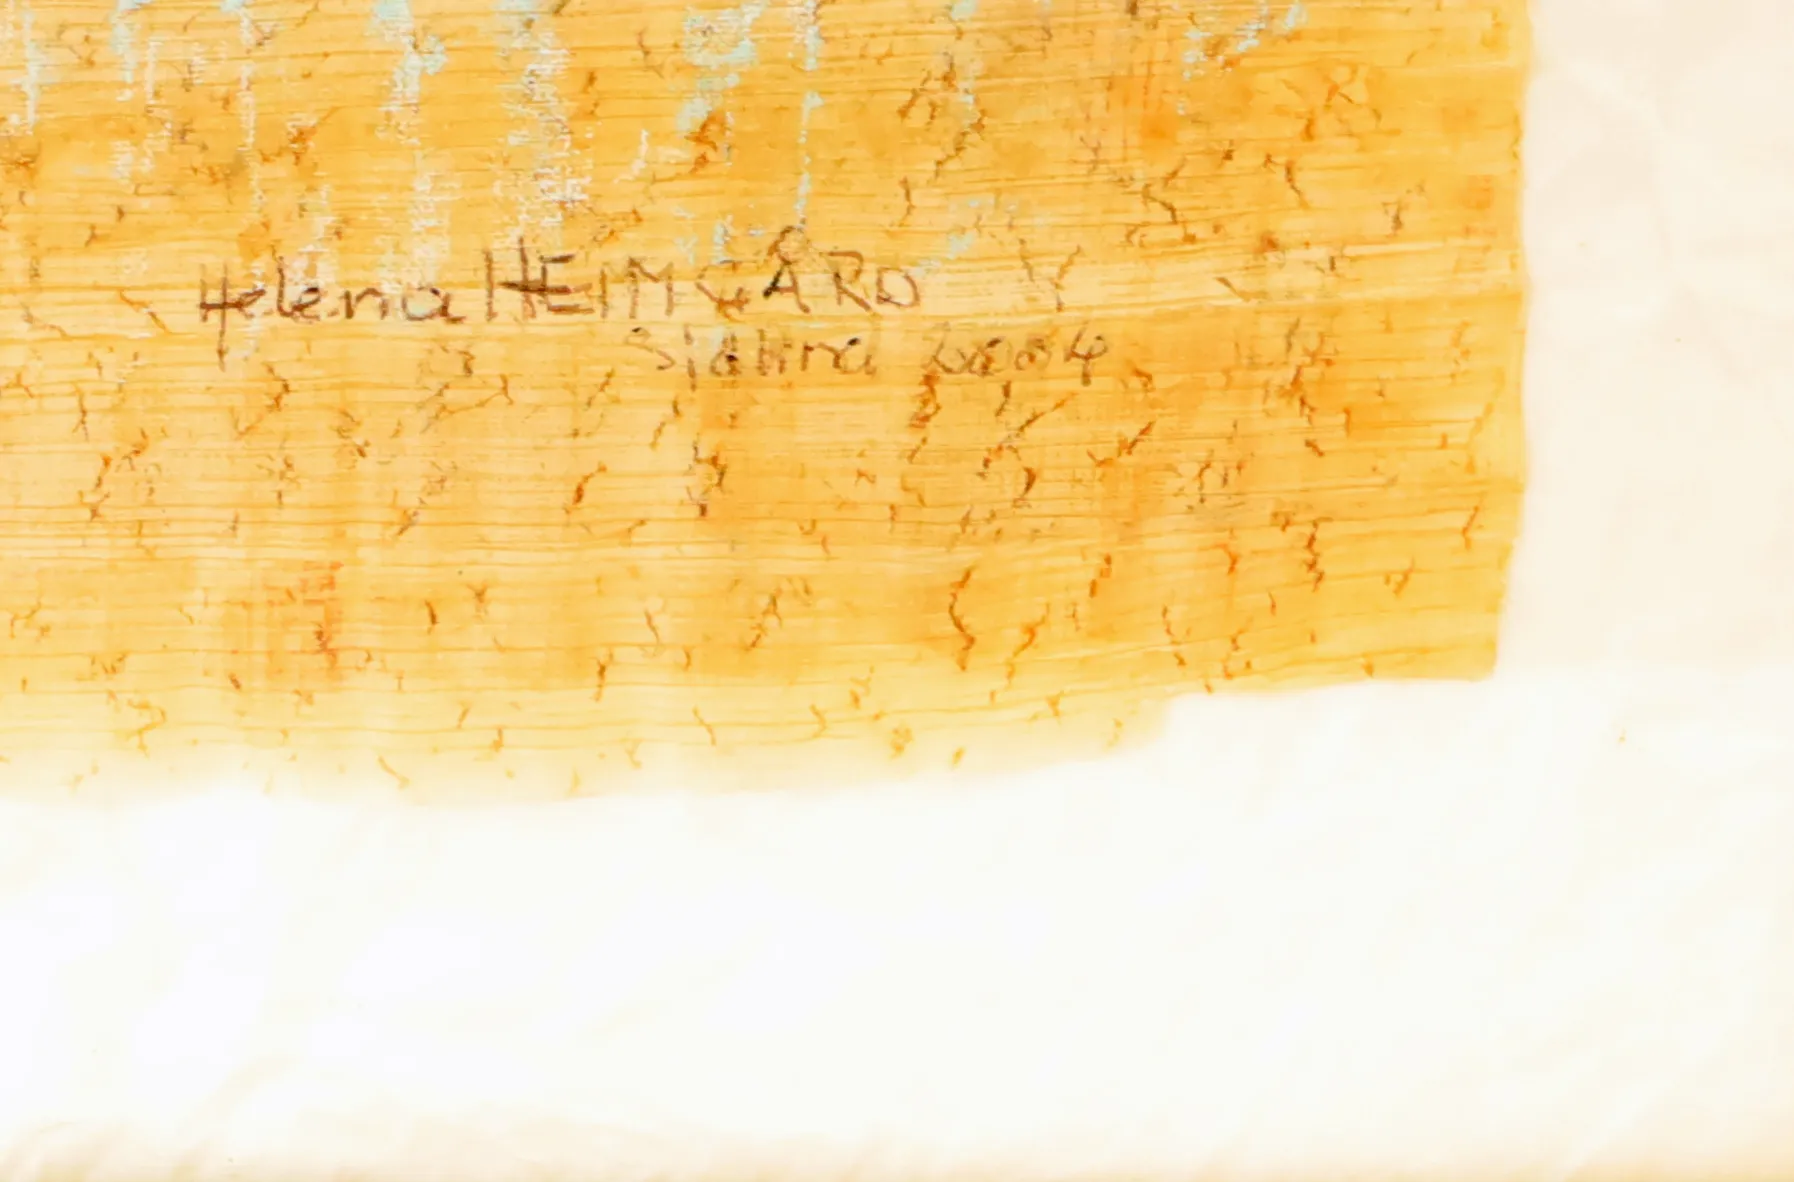 Helena HEIMGÅRD
Sjötira 2004